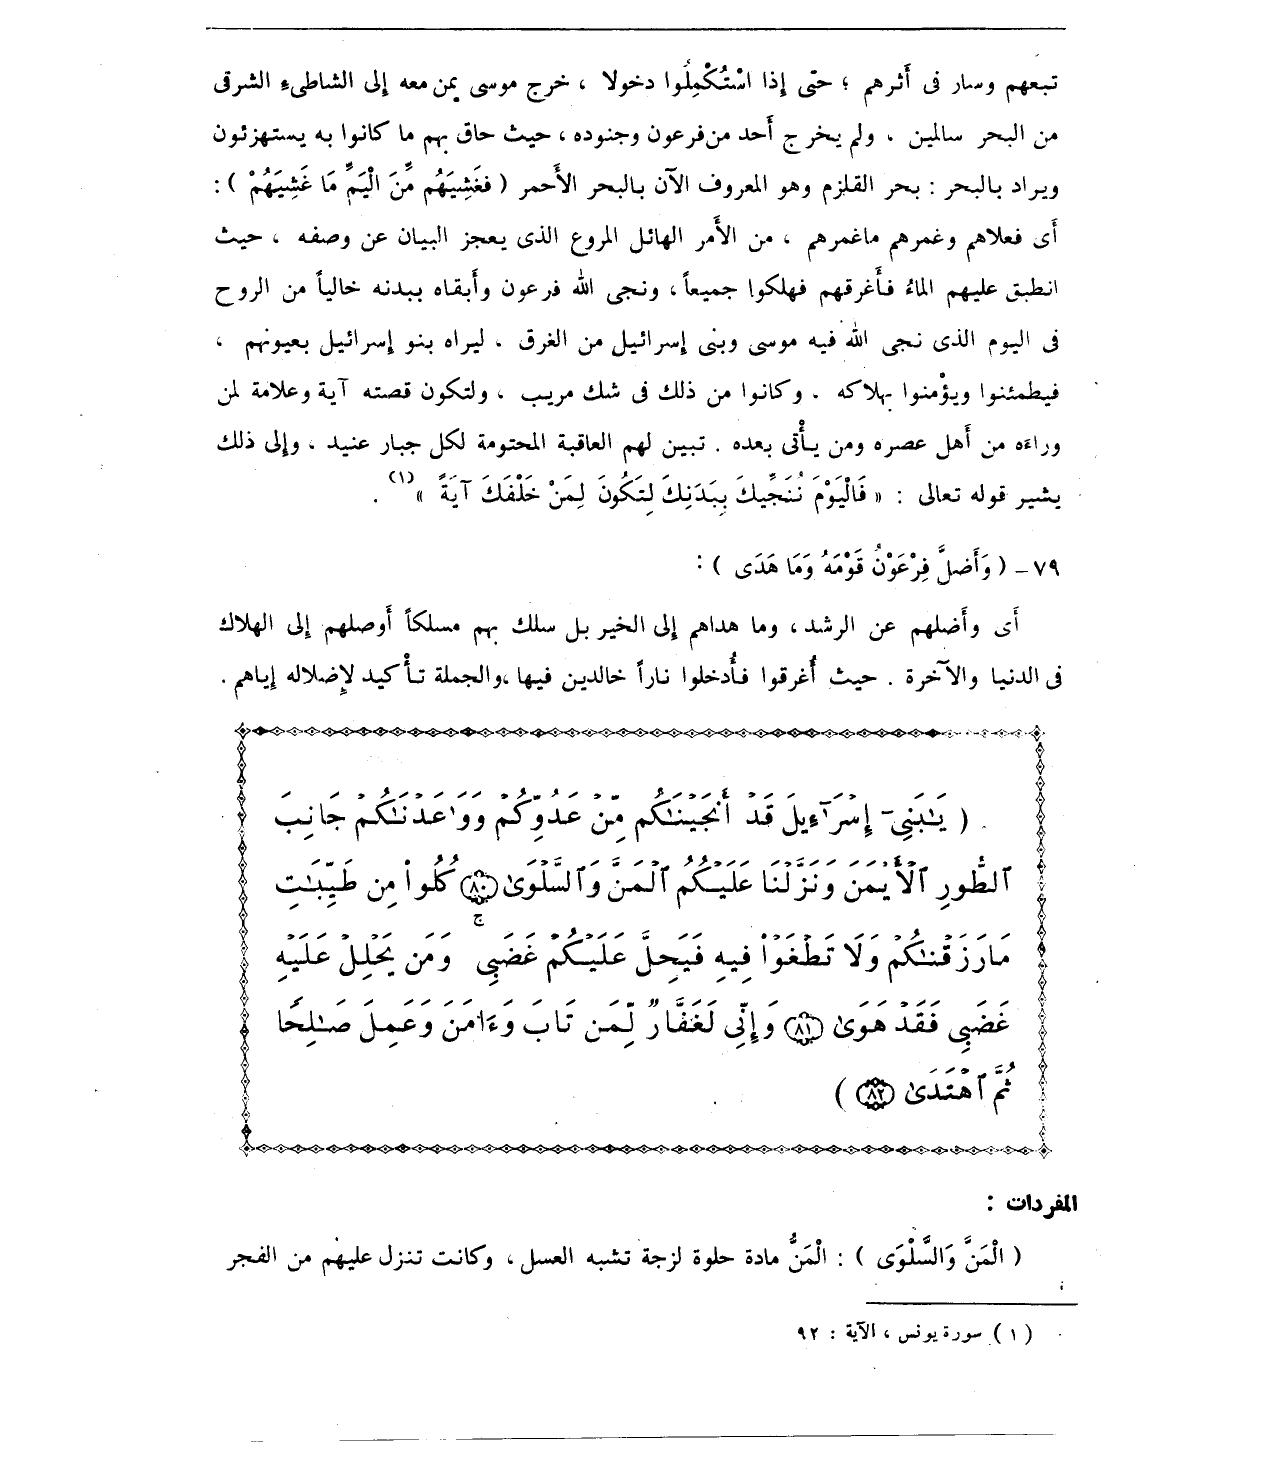 تبعهم وسار فى أَثرهم ؛ حتَّى إِذا اسْتُكْمِلُوا دخولا ، خرج موسى بمن معه إلى الشاطىءِ الشرقى
من البحر سالمين . ولم يخرج أَحد من فرعون وجنوده ، حيث حاق بهم ما كانوا به يستهزئون
ويراد بالبحر : بحر القلزم وهو المعروف الآن بالبحر الأَحمر ( فَغَشِيَهُم مِّنَ الْيَمِّ مَا غَشِيَهُمْ ) :
أَى فعلاهم وغمرهم ماغمرهم ، من الأَمر الهائل المروع الذى يعجز البيان عن وصفه ، حيث
انطبق عليهم الماءُ فأَغرقهم فهلكوا جميعاً ، ونجى الله فرعون وأَبقاه ببدنه خالياً من الروح
فى اليوم الذى نجى الله فيه موسى وبنى إسرائيل من الغرق . ليراه بنو إسرائيل بعيونهم ،
فيطمئنوا ويؤْمنوا بهلاكه . وكانوا من ذلك فى شك مريب . ولتكون قصته آية وعلامة لمن
وراءه من أَهل عصره ومن يأْتى بعده . تبين لهم العاقبة المحتومة لكل جبار عنيد . وإلى ذلك
يشير قوله تعالى : « فَالْيَوْمَ نُنَجِّيكَ بِبَدَنِكَ لِتَكُونَ لِمَنْ خَلْفَكَ آيَةً »(١) .
٧٩ – ( وَأَضَلَّ فِرْعَوْنُ قَوْمَهُ وَمَا هَدَى ) :
أَى وأَضلهم عن الرشد ، وما هداهم إلى الخير بل سلك بهم مسلكاً أَوصلهم إلى الهلاك
فى الدنيا والآخرة . حيث أُغرقوا فأُدخلوا ناراً خالدين فيها ، والجملة تأْكيد لإِضلاله إياهم .
( يَـٰبَنِىٓ إِسْرَٰٓءِيلَ قَدْ أَنجَيْنَـٰكُم مِّنْ عَدُوِّكُمْ وَوَٰعَدْنَـٰكُمْ جَانِبَ
ٱلطُّورِ ٱلْأَيْمَنَ وَنَزَّلْنَا عَلَيْكُمُ ٱلْمَنَّ وَٱلسَّلْوَىٰ ﴿٨٠﴾ كُلُوا۟ مِن طَيِّبَـٰتِ
مَا رَزَقْنَـٰكُمْ وَلَا تَطْغَوْا۟ فِيهِ فَيَحِلَّ عَلَيْكُمْ غَضَبِى ۚ وَمَن يَحْلِلْ عَلَيْهِ
غَضَبِى فَقَدْ هَوَىٰ ﴿٨١﴾ وَإِنِّى لَغَفَّارٌ لِّمَن تَابَ وَءَامَنَ وَعَمِلَ صَـٰلِحًا
ثُمَّ ٱهْتَدَىٰ ﴿٨٢﴾ )
المفردات :
( الْمَنَّ وَالسَّلْوَى ) : الْمَنُّ مادة حلوة لزجة تشبه العسل ، وكانت تنزل عليهم من الفجر
( ١ ) سورة يونس ، الآية : ٩٢